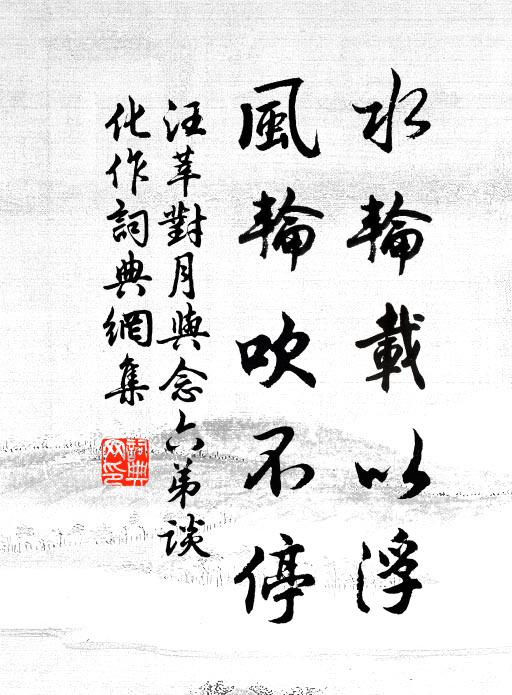 水輪載以浮
風輪吹不停
汪莘對月與念六弟談
化作詞典網集
詞典
网印